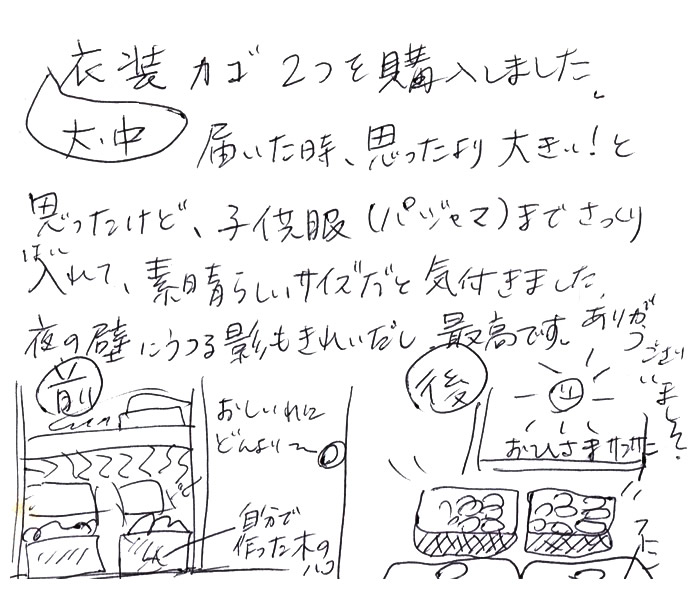 衣装カゴ2つを購入しました。
大・中
届いた時、思ったより大きい!と
思ったけど、子供服(パジャマ)までざっくり
入れて、素晴らしいサイズだと気付きました。
夜の壁にうつる影もきれいだし、最高です。
ありがとうございました。
前
おしいれに
どんより〜
自分で
作った木の
ハコ
後
おひさま